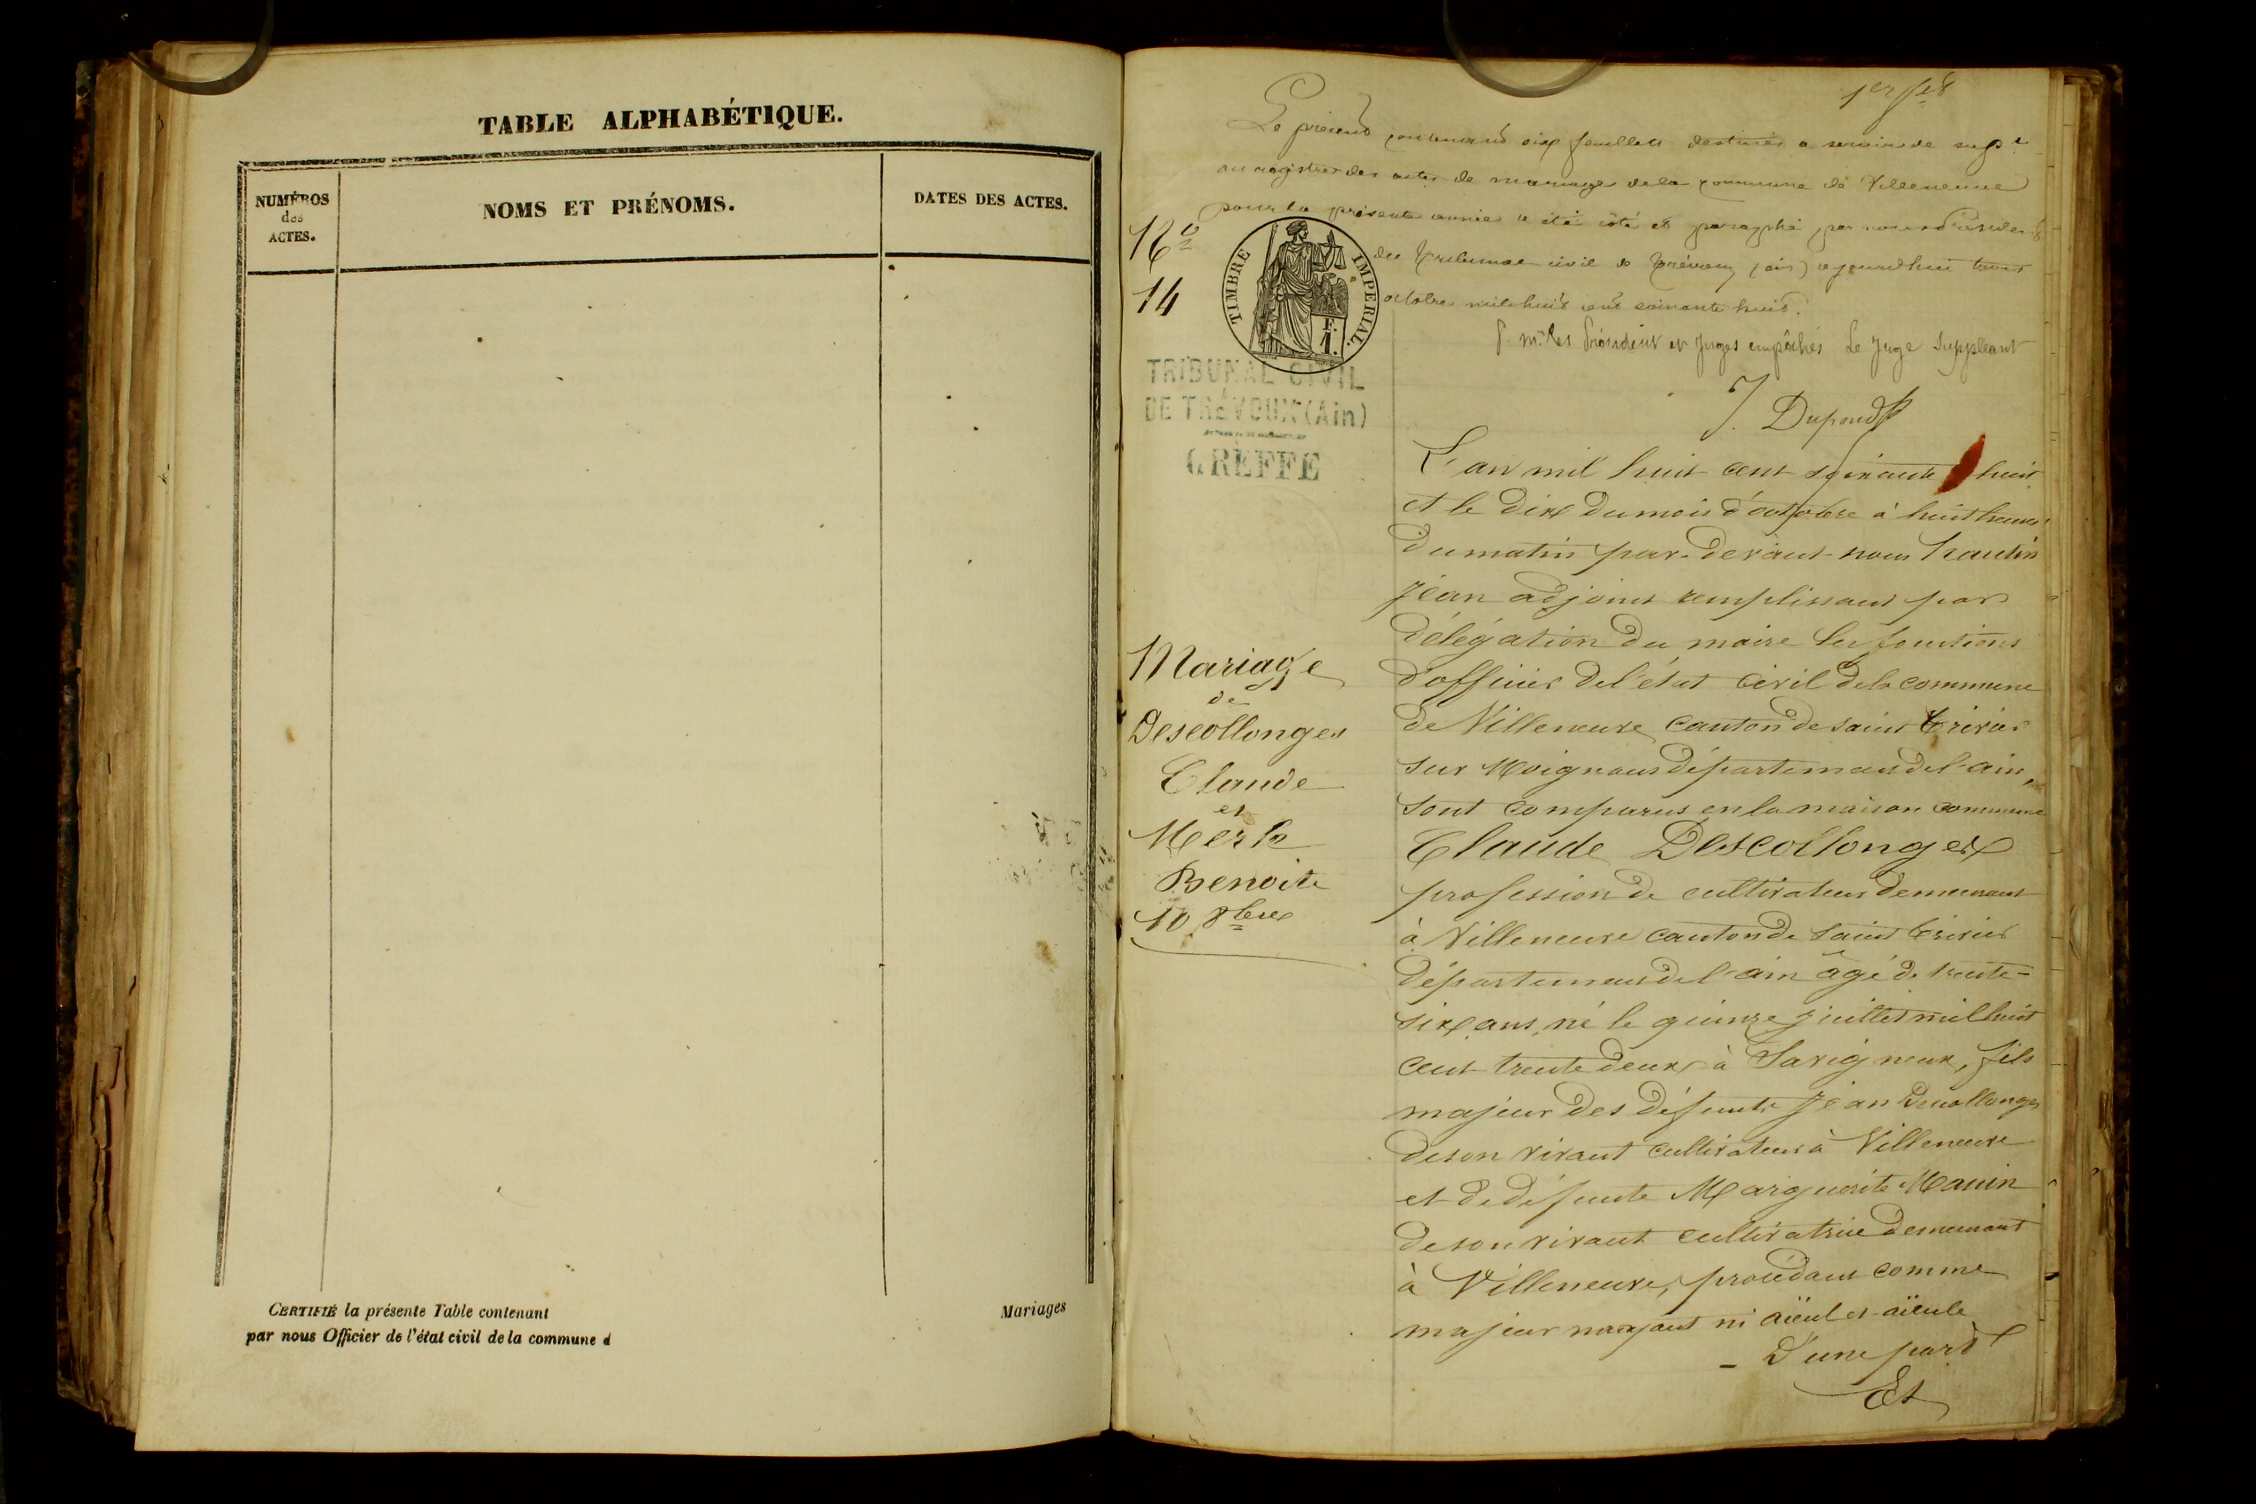 TABLE ALPHABÉTIQUE.
NUMÉROS
des
ACTES.
NOMS ET PRÉNOMS.
DATES DES ACTES.
CERTIFIÉ la présente Table contenant
Mariages
par nous Officier de l'état civil de la commune d
1er
Le présent contenant six feuillets destinés a servir de
au registre des actes de mariage de la commune de Villeneuve
pour la présente année a été côté et paraphé par nous Président
du Tribunal civil de Trévoux (ain) aujourdhui trois
octobre mil huit cent soixante huit.
P. mrs les Président et Juges empêchés Le Juge Suppleant
Dupond
14
TIMBRE IMPERIAL.
TRIBUNAL CIVIL
DE TRÉVOUX (Ain)
GREFFE
L'an mil huit cent soixante huit
et le dix du mois d'octobre à huit heures
du matin par-devant nous
Jean adjoint remplissant par
délégation du maire les fonctions
d'officier de l'état civil de la commune
de Villeneuve canton de saint trivier
sur Moignans département de l'ain,
sont comparus en la maison commune
Claude Descollonges
profession de cultivateur demeurant
à Villeneuve canton de saint trivier
département de l'ain âgé de trente-
six ans, né le quinze juillet mil huit
cent trente deux à Savigneux, fils
majeur des défunts Jean Descollonges
de son vivant cultivateur à Villeneuve
et de défunte Marguerite Manin
de son vivant cultivatrice demeurant
à Villeneuve, procédant comme
majeur n'ayant ni aïeul et aïeule
- D'une part
Et
Mariage
de
Descollonges
Claude
et
Merle
Benoite
10 8bre